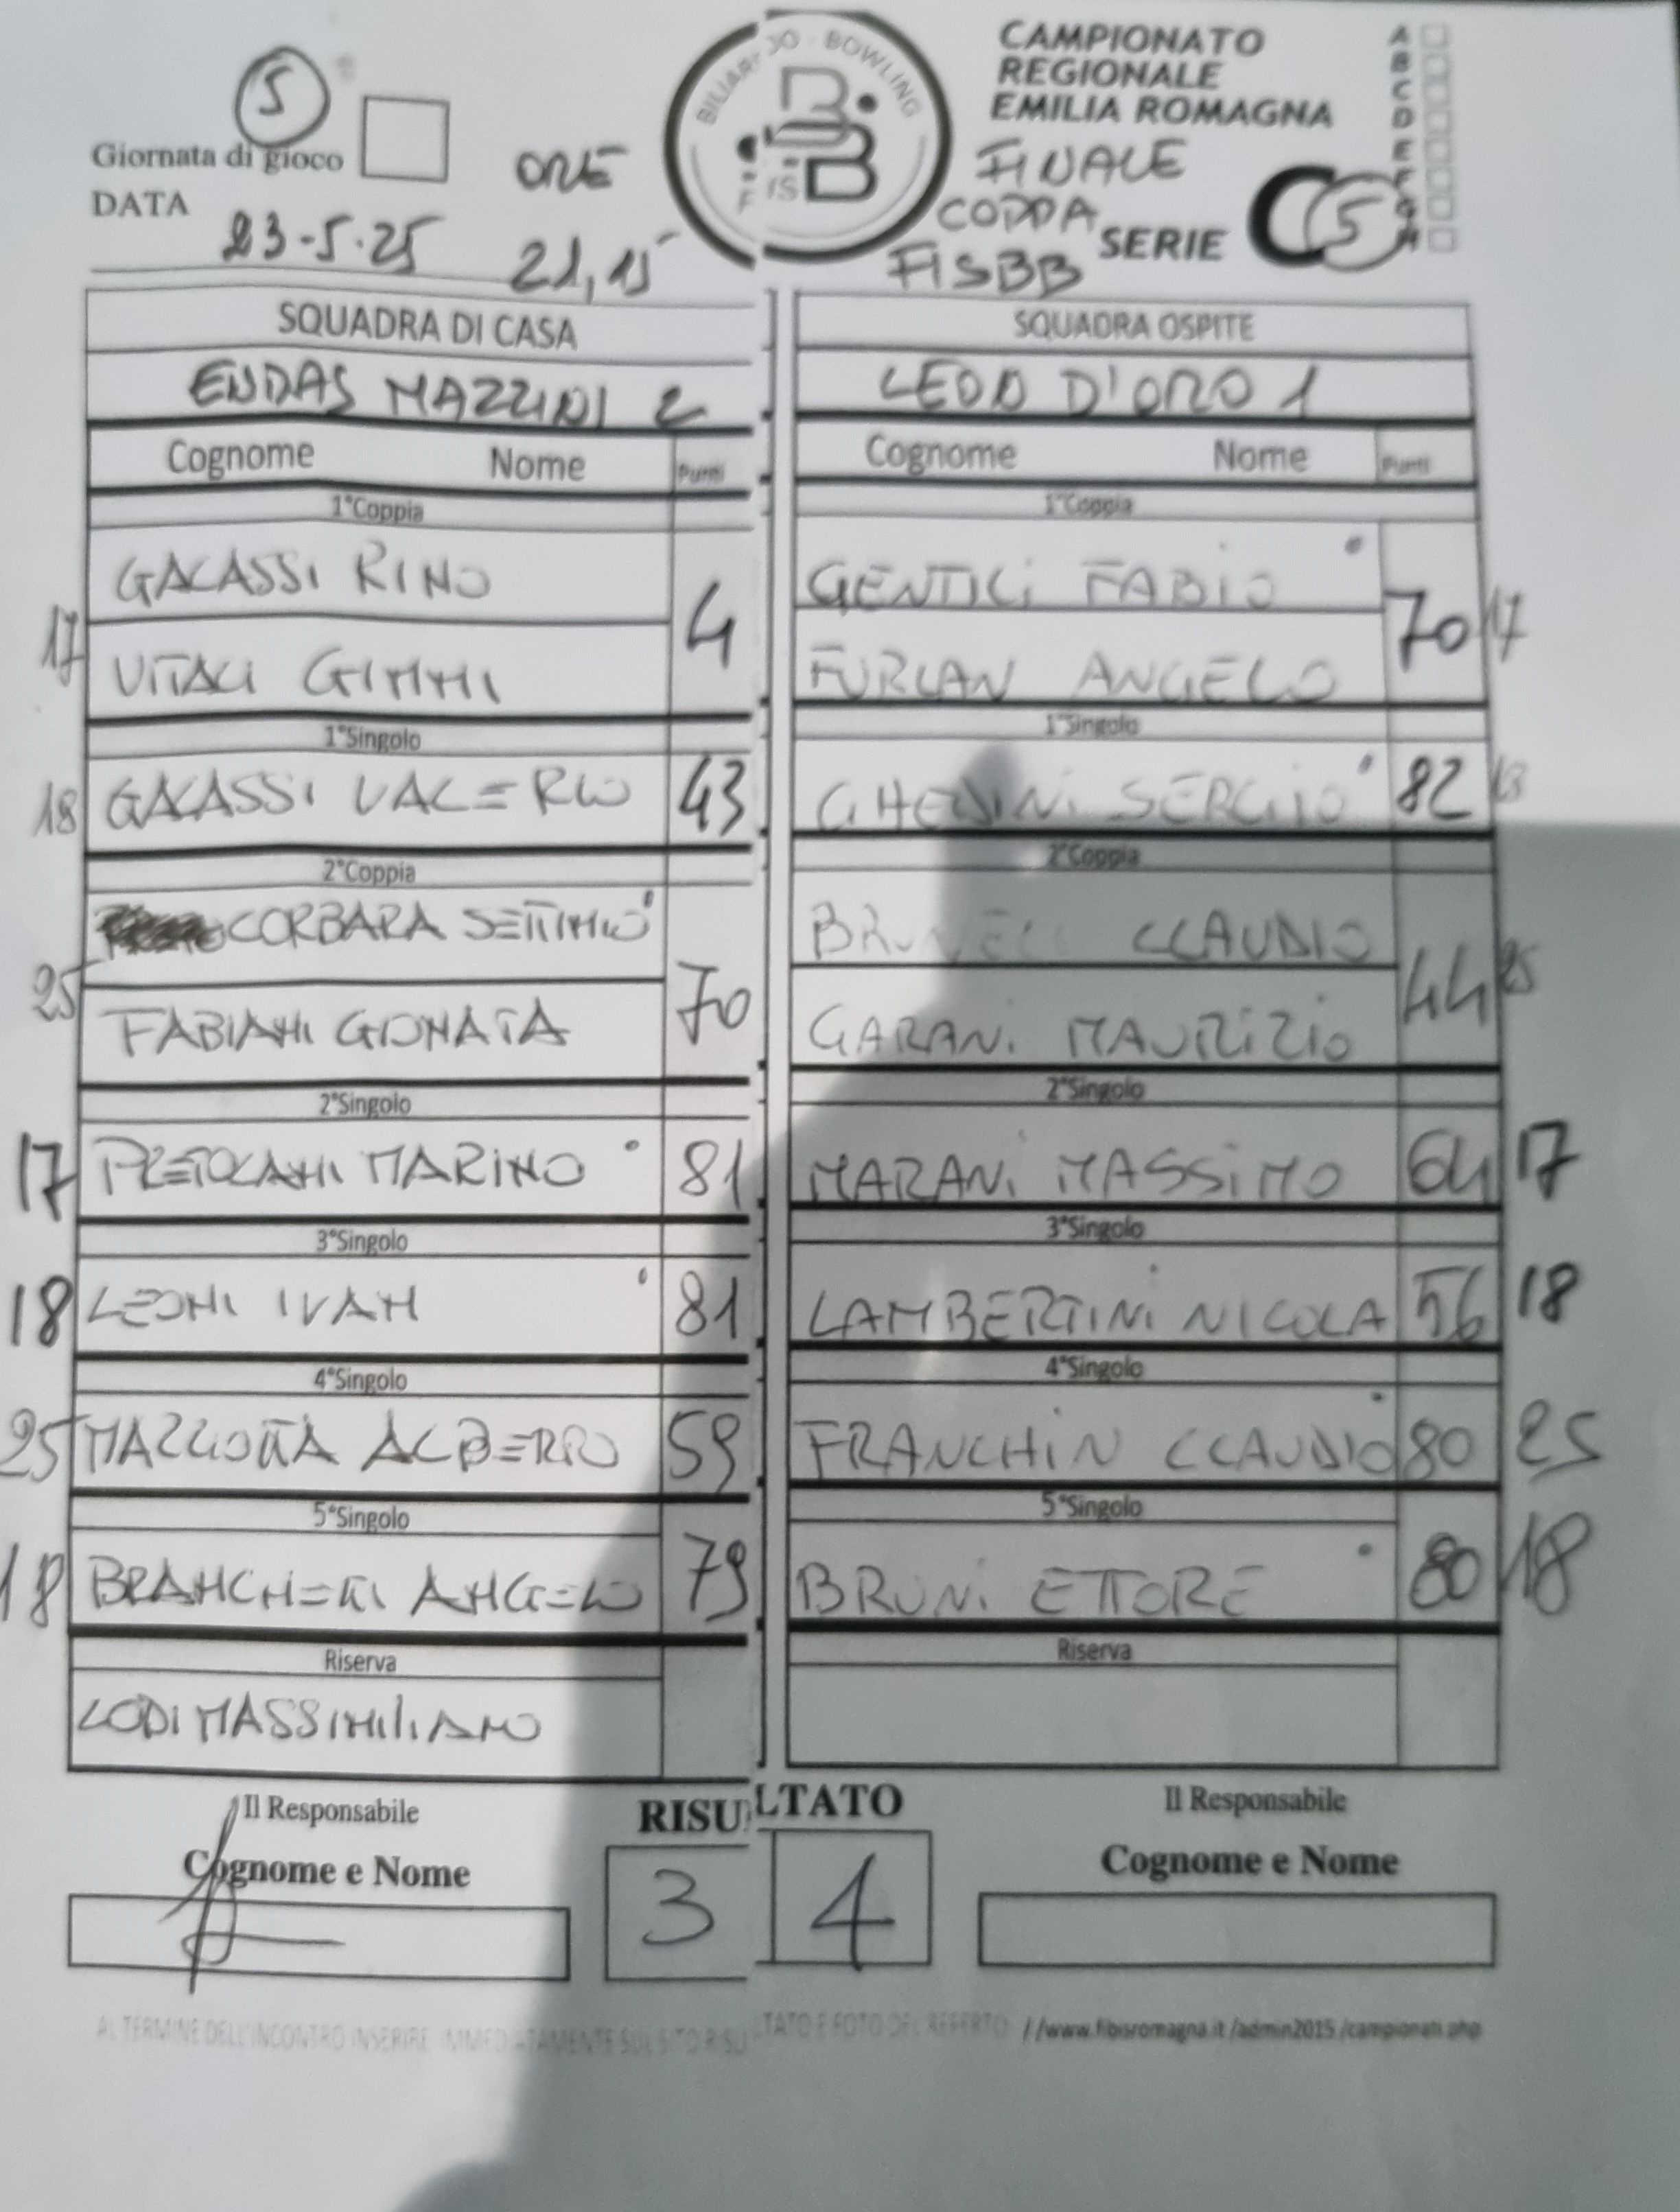 5
Giornata di gioco
DATA
23-5-25
ORE
21,15
BILIARDO - BOWLING
FISBB
CAMPIONATO
REGIONALE
EMILIA ROMAGNA
FINALE
COPPA
FISBB
SERIE C 5
A
B
C
D
E
F
G
H
SQUADRA DI CASA
ENDAS MAZZINI 2
Cognome Nome Punti
1°Coppia
17 GALASSI RINO 4
VITALI GIMMI
1°Singolo
18 GALASSI VALERIO 43
2°Coppia
25 CORBARA SETTIMIO 70
FABIANI GIONATA
2°Singolo
17 PRETOLANI MARINO 81
3°Singolo
18 LEONI IVAN 81
4°Singolo
25 MAZZIOTTA ALBERTO 59
5°Singolo
18 BRANCHETTI ANGELO 79
Riserva
LODI MASSIMILIANO
Il Responsabile
Cognome e Nome
SQUADRA OSPITE
LEON D'ORO 1
Cognome Nome Punti
1°Coppia
GENTILI FABIO 70 17
FURLAN ANGELO
1°Singolo
GHEDINI SERGIO 82 18
2°Coppia
BRUNELLI CLAUDIO 44 25
GARANI MAURIZIO
2°Singolo
MARANI MASSIMO 64 17
3°Singolo
LAMBERTINI NICOLA 56 18
4°Singolo
FRANCHIN CLAUDIO 80 25
5°Singolo
BRUNI ETTORE 80 18
Riserva
RISULTATO
3 4
Il Responsabile
Cognome e Nome
AL TERMINE DELL'INCONTRO INSERIRE IMMEDIATAMENTE SUL SITO RISULTATO E FOTO DEL REFERTO //www.fibisromagna.it /admin2015 /campionati.php